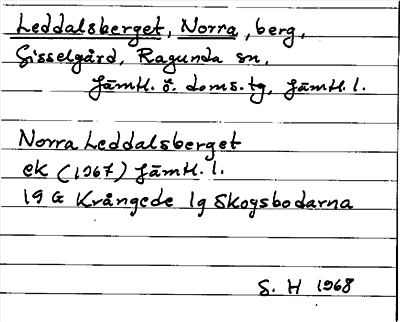 Leddalsberget, Norra, berg,
Gisselgård, Ragunda sn,
Jämtl. ö. doms.tg, Jämtl. l.
Norra Leddalsberget
ek (1967) Jämtl. l.
19 G Krångede 1g Skogsbodarna
S. H 1968